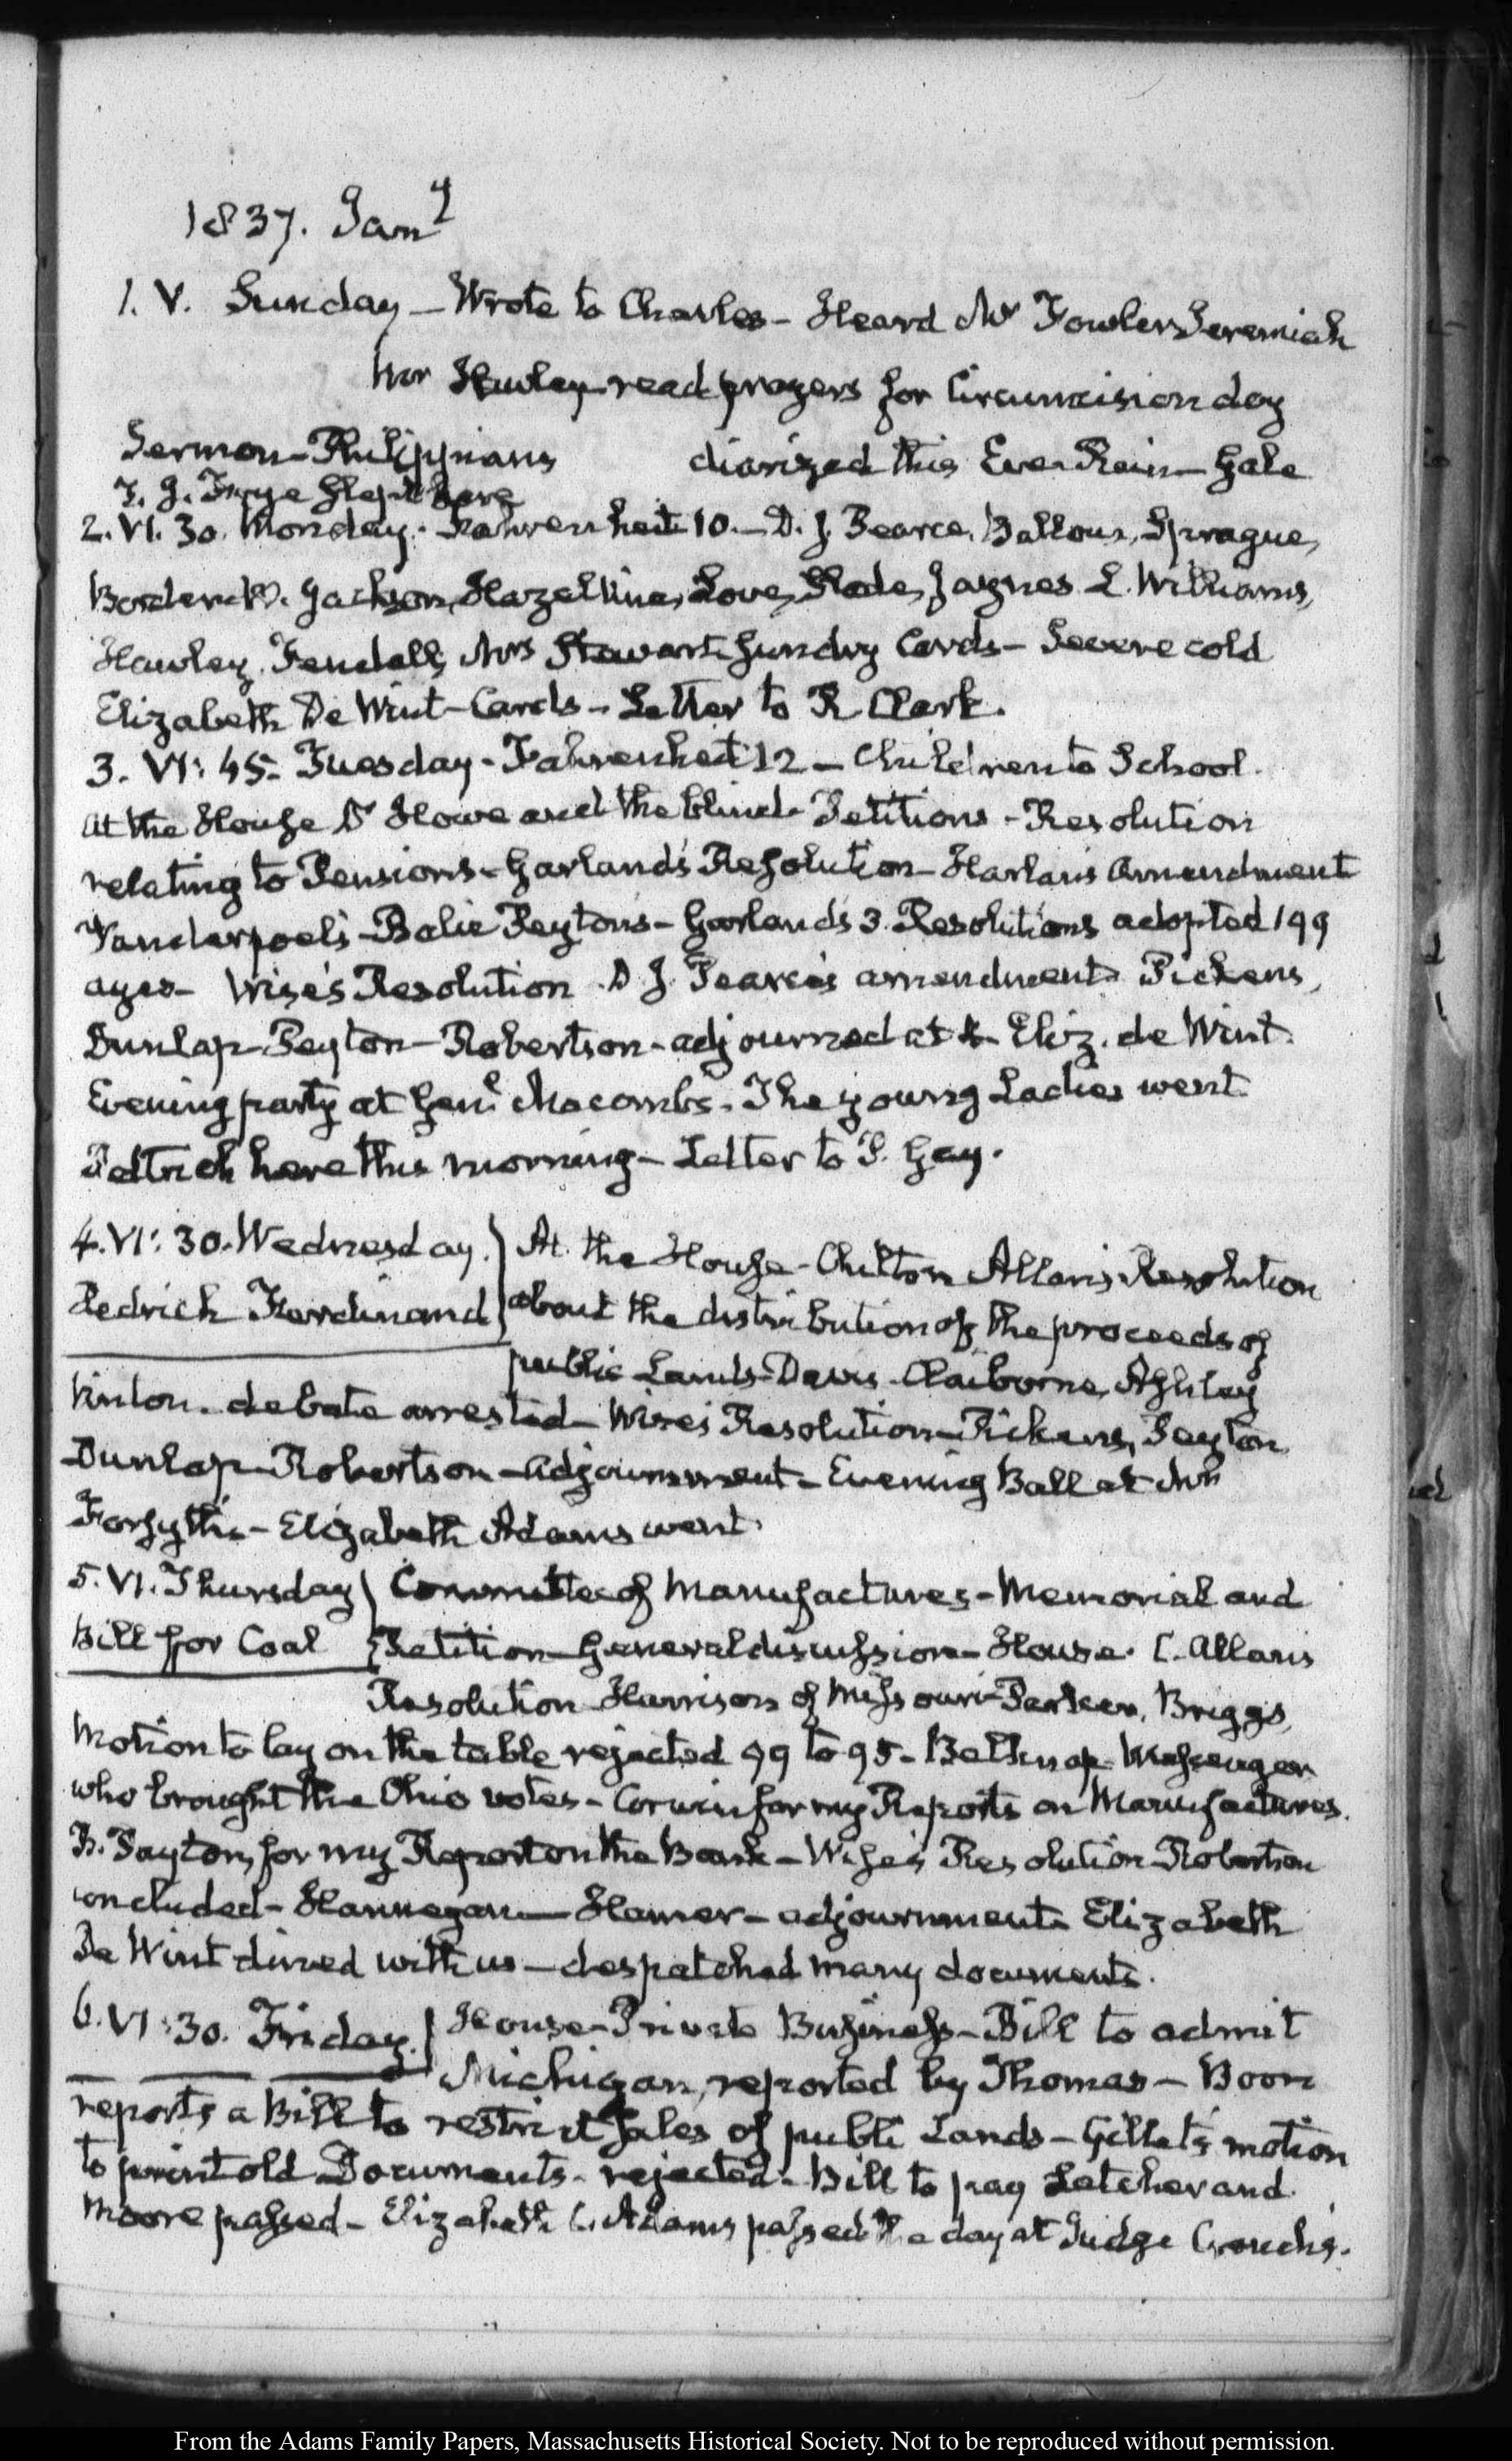 1837. Jany
1. V. Sunday – Wrote to Charles – Heard Mr Fowler Jeremiah
Mr Hawley read prayers for Circumcision day
Sermon – Philippians diarized this Eve. Rain – Gale
T. J. Frye slept here
2. VI. 30. Monday. Fahrenheit 10. – D. J. Pearce, Ballour, Sprague,
Borden W. Jackson, Hazeltine, Love, Slade, Jaynes L. Williams,
Hawley. Fendall, Mrs Stewart. Sundry Cards – Severe cold
Elizabeth De Wint – Cards – Letter to R Clark.
3. VI: 45. Tuesday – Fahrenheit 12 – Children to School.
At the House Dr Howe and the blind. Petitions – Resolution
relating to Pensions – Garland's Resolution – Harlan's Amendment
Vanderpoel's – Balie Peyton's – Garlands 3. Resolutions adopted 199
ayes – Wise's Resolution. D J. Pearce's amendment. Pickens,
Dunlap – Peyton – Robertson – adjourned at 4 – Eliz. de Wint.
Evening party at Genl Macombs. The young Ladies went
here this morning – Letter to P. Gay.
4. VI: 30. Wednesday. At the House – Chilton Allan's Resolution
Pedrick Ferdinand about the distribution of the proceeds of
public Lands – Davis – Claiborne, Ashley
Vinton. debate arrested – Wise's Resolution – Pickens, Peyton
Dunlap – Robertson – Adjournment – Evening Ball at Mr
Forsyth's – Elizabeth Adams went.
5. VI. Thursday Committee of Manufactures – Memorial and
Bill for Coal Petition – General discussion – House. C. Allan's
Resolution – Harrison of Missouri – Parker, Briggs,
Motion to lay on the table rejected 99 to 95 – Belknap Messenger
who brought the Ohio votes – Corwin for my Reports on Manufactures.
B. Payton, for my Report on the Bank – Wise's Resolution – Robertson
concluded – Hannegan – Hamer – adjournment. Elizabeth
De Wint dined with us – despatched many documents.
6. VI: 30. Friday. House – Private Business – Bill to admit
Michigan, reported by Thomas – Boon
reports a Bill to restrict sales of public Lands – Gillet's motion
to print old Documents – rejected – Bill to pay Letcher and
Moore passed – Elizabeth C. Adams passed the day at Judge Cranch's.
From the Adams Family Papers, Massachusetts Historical Society. Not to be reproduced without permission.